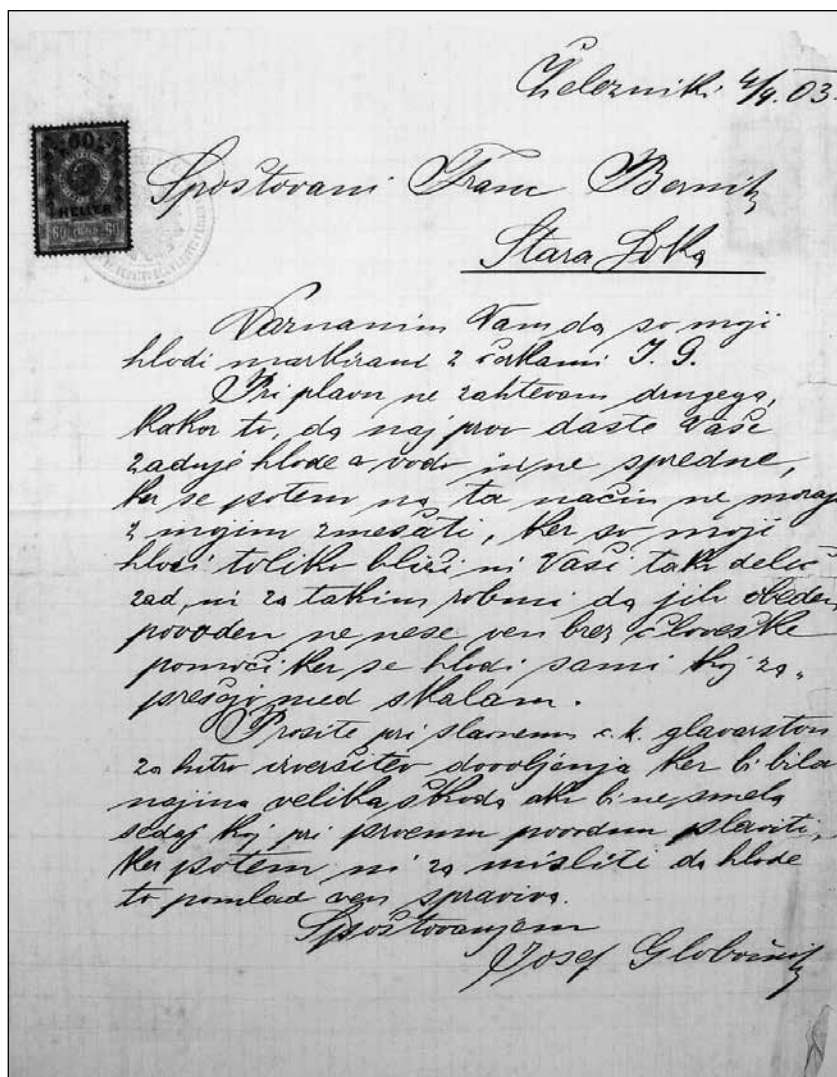 Železniki 4/4. 03.
60
HELLER
60 60
Spoštovani Franc Bernik
Stara Loka
Naznanim Vam da so moji
hlodi markirani z črkami J. G.
Pri plavu ne zahtevam drugega,
kakor to, da naj prov daste Vaše
zadnje hlode v vodo in ne spredne,
ker se potem na ta način ne morajo
z mojim zmešati, ker so moji
hlodi toliko bliži ni Vaši tako deleč
zad, ni za takim robmi da jih obeden
povoden ne nese ven brez človeške
pomoči ker se hlodi sami koj za„
presajo med skalam.
Prosite pri slavnemu c. k. glavarstvu
za hitro izveršitev dovoljenja ker bi bila
najina velika škoda ako bi ne smela
sedaj koj pri prvemu povodnu plaviti,
ker potem ni za misliti da hlode
to pomlad ven spraviva.
Spoštovanjem
Josef Globočnik